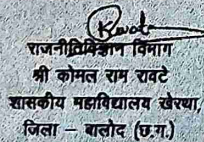 राजनीतिविज्ञान विभाग
श्री कोमल राम रावटे
शासकीय महाविद्यालय खेरथा,
जिला – बालोद (छ.ग.)